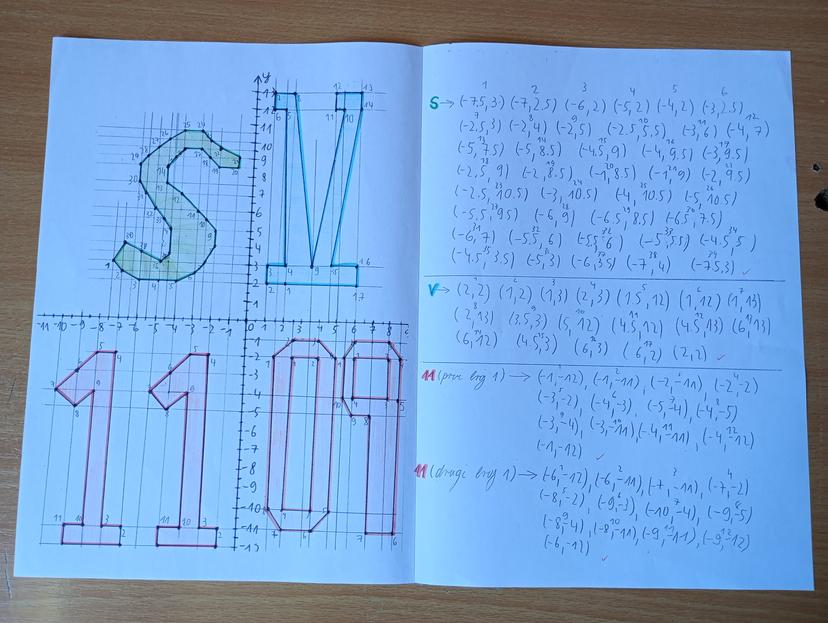 S → (-7.5, 3) (-7, 2.5) (-6, 2) (-5, 2) (-4, 2) (-3, 2.5)
(-2.5, 3) (-2, 4) (-2, 5) (-2.5, 5.5) (-3, 6) (-4, 7)
(-5, 7.5) (-5, 8.5) (-4.5, 9) (-4, 9.5) (-3, 9.5)
(-2.5, 9) (-2, 8.5) (-1, 8.5) (-1, 9) (-2, 9.5)
(-2.5, 10.5) (-3, 10.5) (-4, 10.5) (-5, 10.5)
(-5.5, 9.5) (-6, 9) (-6.5, 8.5) (-6.5, 7.5)
(-6, 7) (-5.5, 6) (-5.5, 6) (-5, 5.5) (-4.5, 5)
(-4.5, 3.5) (-5, 3) (-6, 3.5) (-7, 4) (-7.5, 3)
V → (2, 2) (1, 2) (1, 3) (2, 3) (1.5, 12) (1, 12) (1, 13)
(2, 13) (3.5, 3) (5, 12) (4.5, 12) (4.5, 13) (6, 13)
(6, 12) (4.5, 3) (6, 3) (6, 2) (2, 2)
11 (prvi broj 1) → (-1, -12), (-1, -11), (-2, -11), (-2, -2)
(-3, -2), (-4, -3), (-5, -4), (-4, -5)
(-3, -4), (-3, -11), (-4, -11), (-4, -12)
(-1, -12)
11 (drugi broj 1) → (-6, -12), (-6, -11), (-7, -11), (-7, -2)
(-8, -2), (-9, -3), (-10, -4), (-9, -5)
(-8, -4), (-8, -11), (-9, -11), (-9, -12)
(-6, -12)